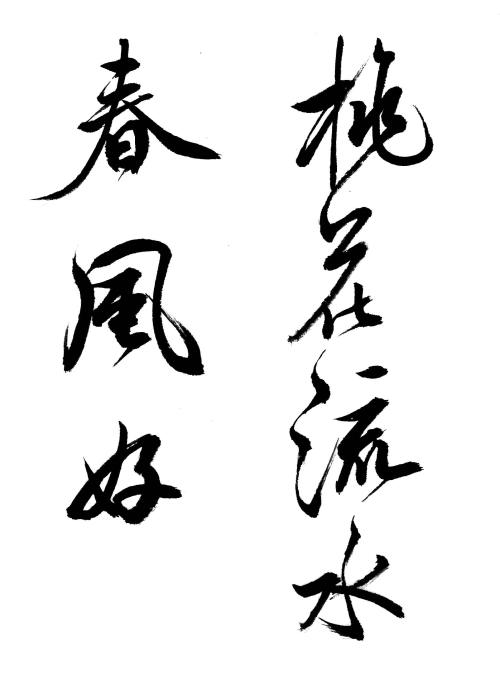 桃花流水
春風好